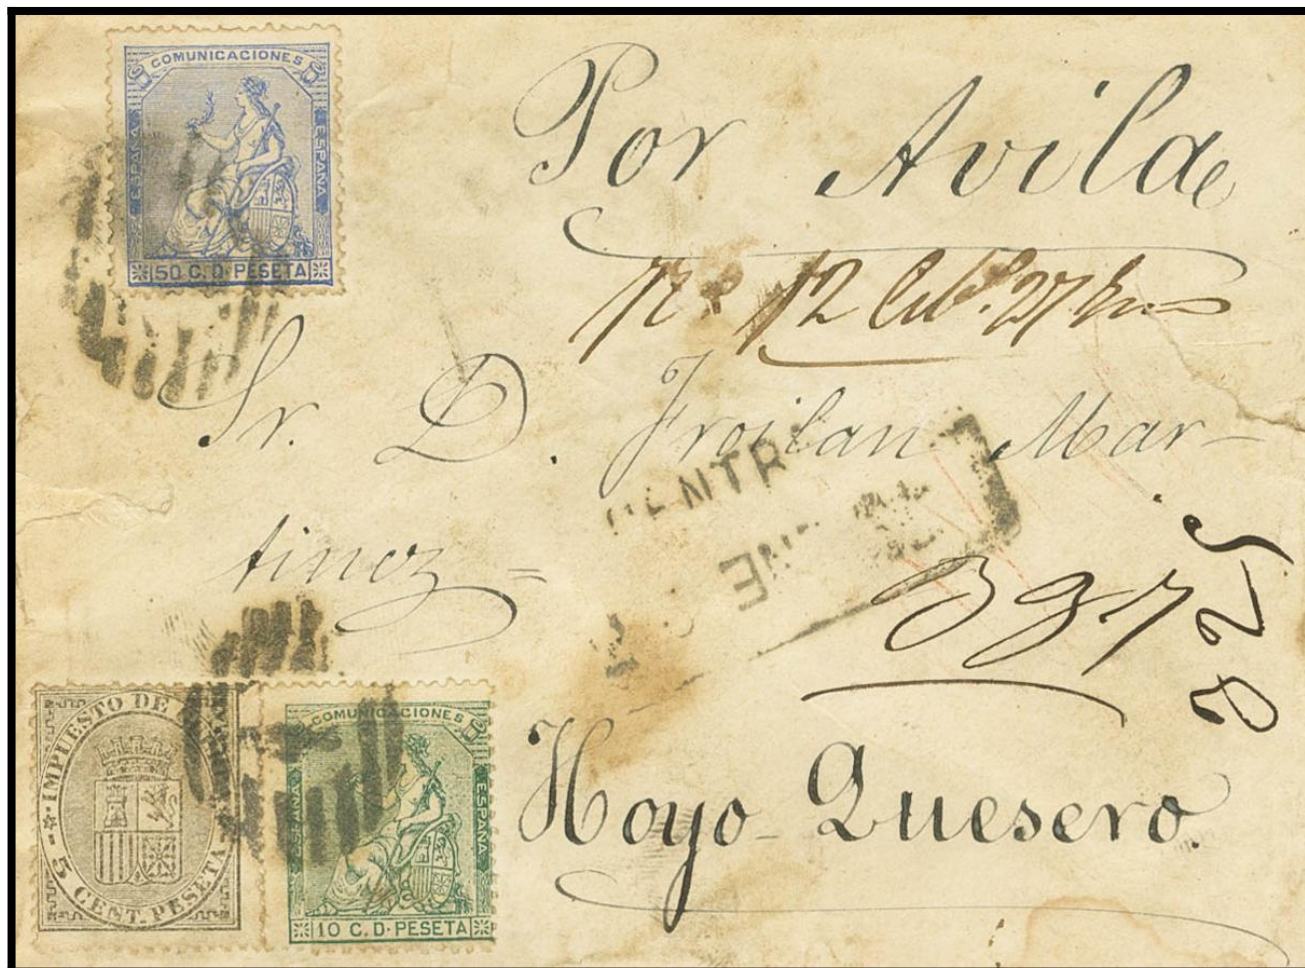 COMUNICACIONES
ESPAÑA
ESPAÑA
50 C. D. PESETA
Por Avila
Sr. D. Froilan Mar-
tinez =
825
Hoyo-Quesero.
IMPUESTO DE
5 CENT. PESETA
COMUNICACIONES
ESPAÑA
ESPAÑA
10 C. D. PESETA